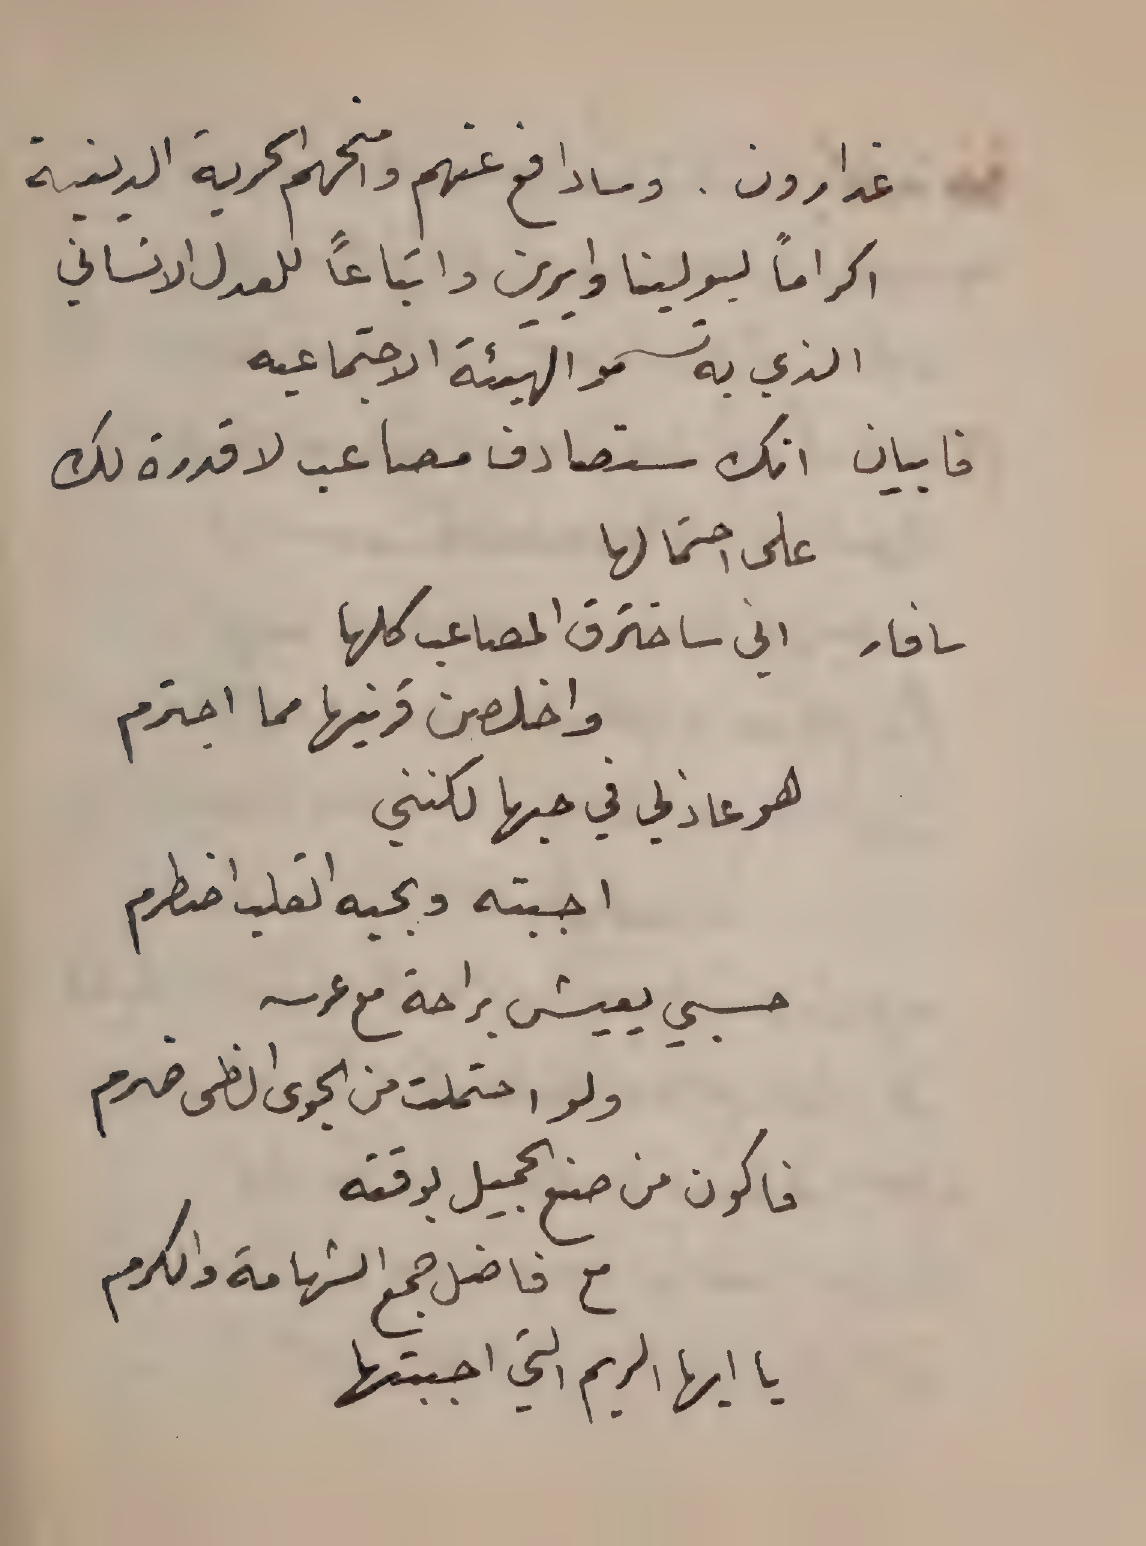 غدارون . وسادافع عنهم وامنحهم الحرية الدينية
اكراماً لبولينا وايرين واتباعاً للعدل الانساني
الذي به تسمو الهيئة الاجتماعيه
فابيان انك ستصادف مصاعب لا قدرة لك
على احتمالها
سافار اني ساخترق المصاعب كلها
واخلصن قرينها مما اجترم
هو عاذلي في حبها لكنني
احببته وبحبه القلب اضطرم
حسبي يعيش براحة مع عرسه
ولو احتملت من الجوى الظى ضرم
فاكون من صنع الجميل بوقفه
مع فاضل جمع الشهامة والكرم
يا ايها الريم التي احببتها